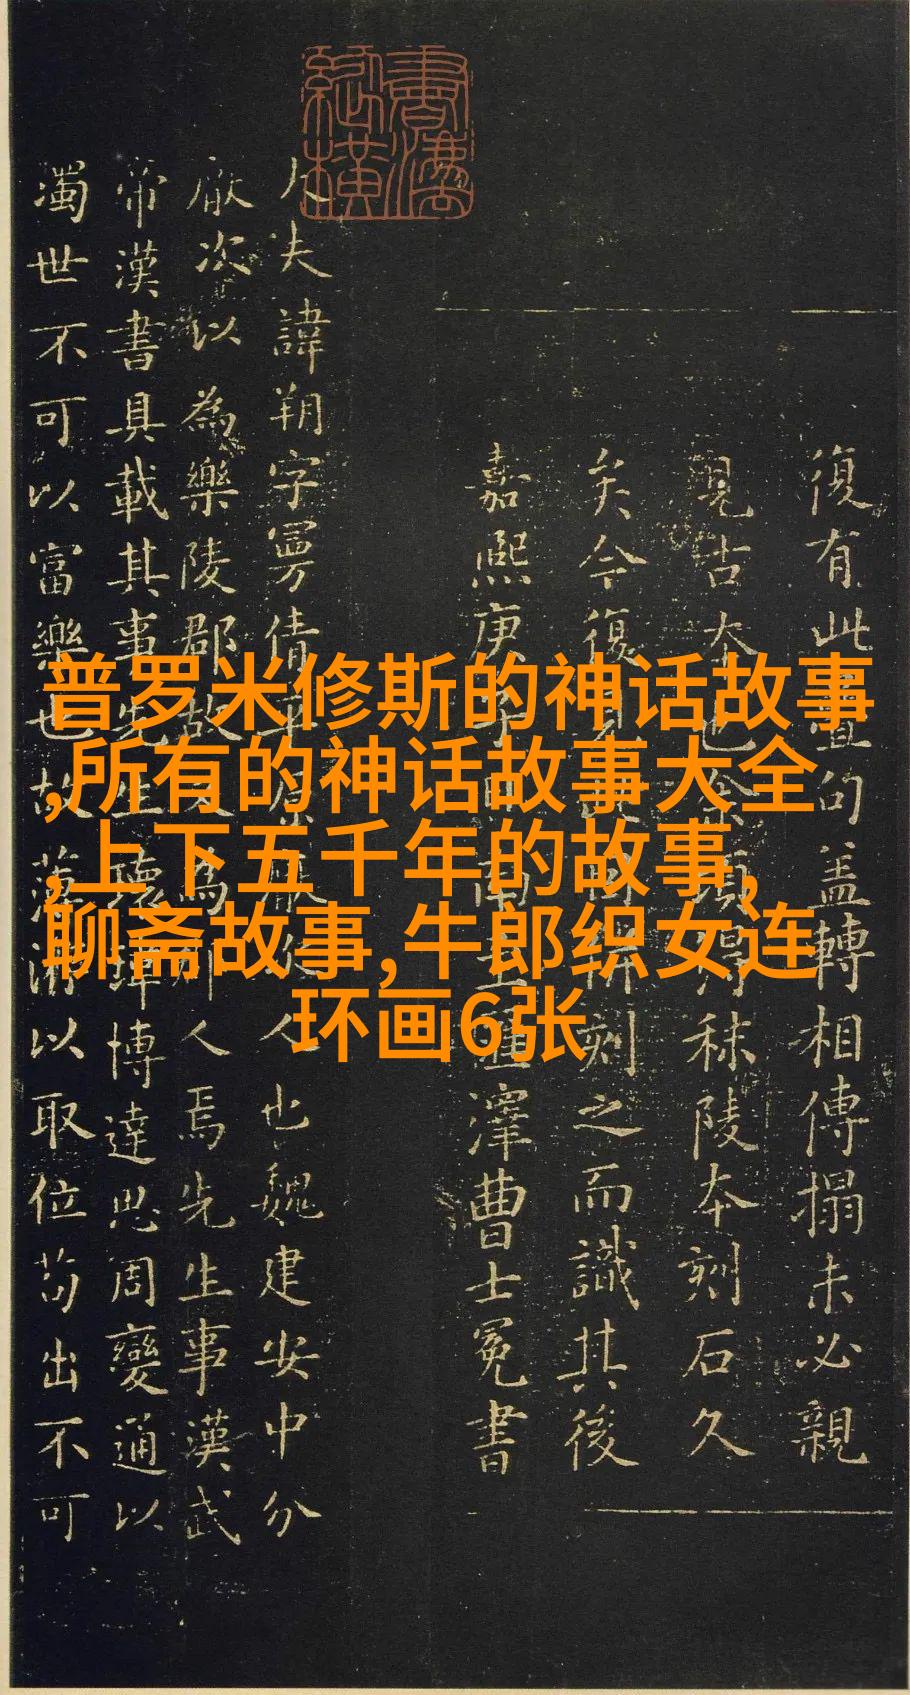 普罗米修斯的神话故事
,所有的神话故事大全
,上下五千年的故事,
聊斋故事,牛郎织女连
环画6张
復有此壹句盖轉相傳搨未必親
見古本也得秣陵本刻石久
矣今復見刻之而識其後
嘉熙庚澤曹士冕書
大夫諱朔字曼倩平原厭次人也魏建安中分
厭次以為樂陵郡故又為郡人焉先生事漢武
帝漢書具載其事先生瓌瑋博達思周變通以
濁世不可以富樂也故薄游以取位苟出不可